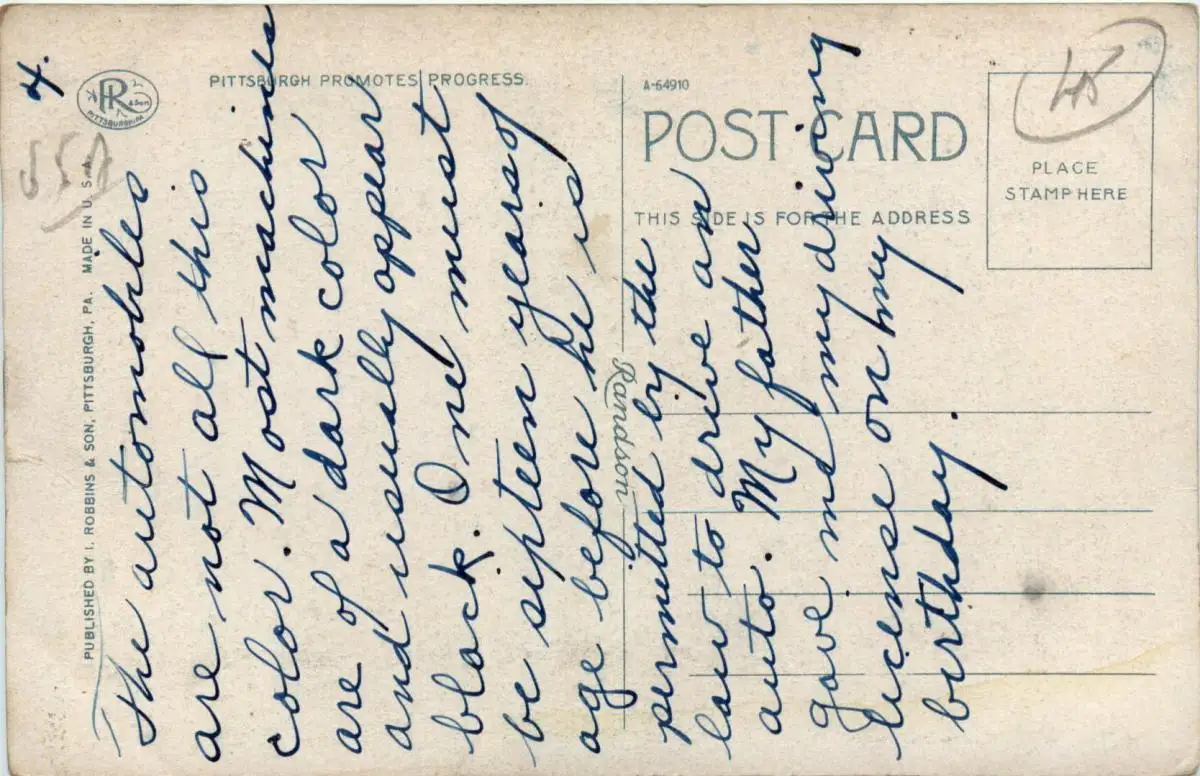 4.
R
& Son
PITTSBURGH, PA.
PITTSBURGH PROMOTES PROGRESS.
A-64910
POST CARD
THIS SIDE IS FOR THE ADDRESS
PLACE
STAMP HERE
45
55A
PUBLISHED BY I. ROBBINS & SON, PITTSBURGH, PA. MADE IN U. S. A.
The automobiles
are not all this
color. Most machines
are of a dark color
and usually appear
black. One must
be septeen years of
age before he is
permitted by the
law to drive an
auto. My father
gave me my driving
license on my
birthday.